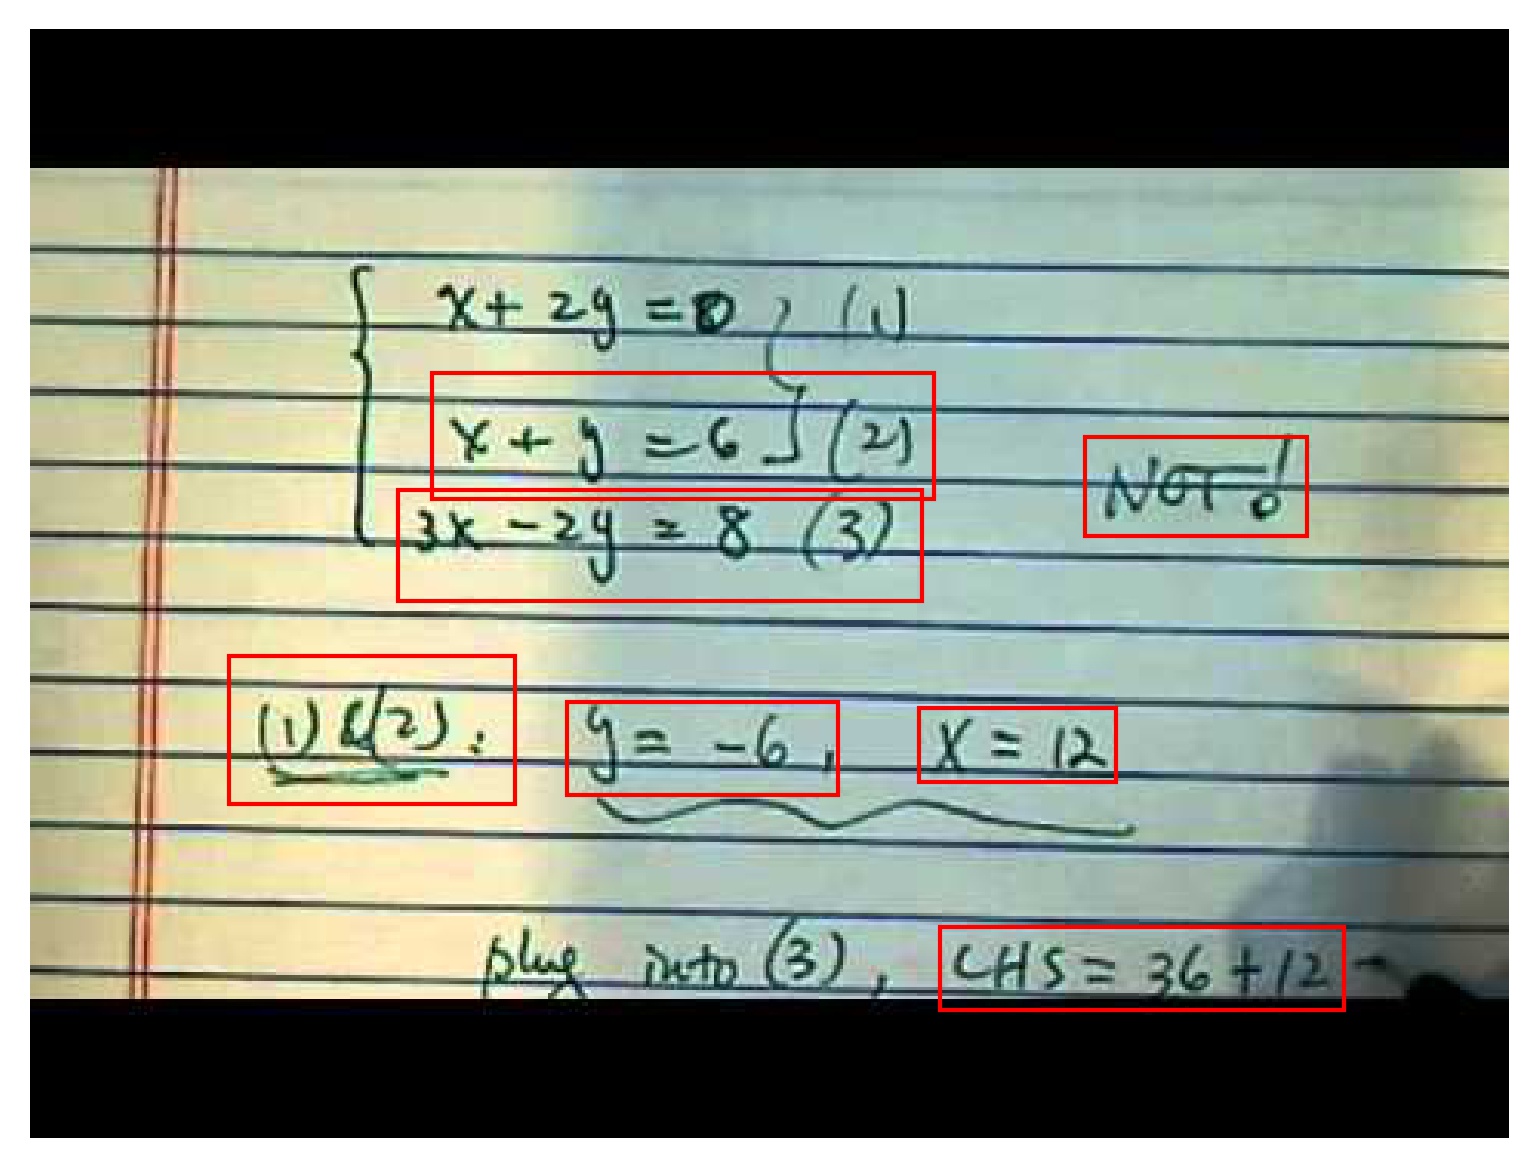 x + 2y = 0 (1)
x + y = 6 (2)
NOT!
3x - 2y = 8 (3)
(1) & (2): y = -6, x = 12
plug into (3), LHS = 36 + 12